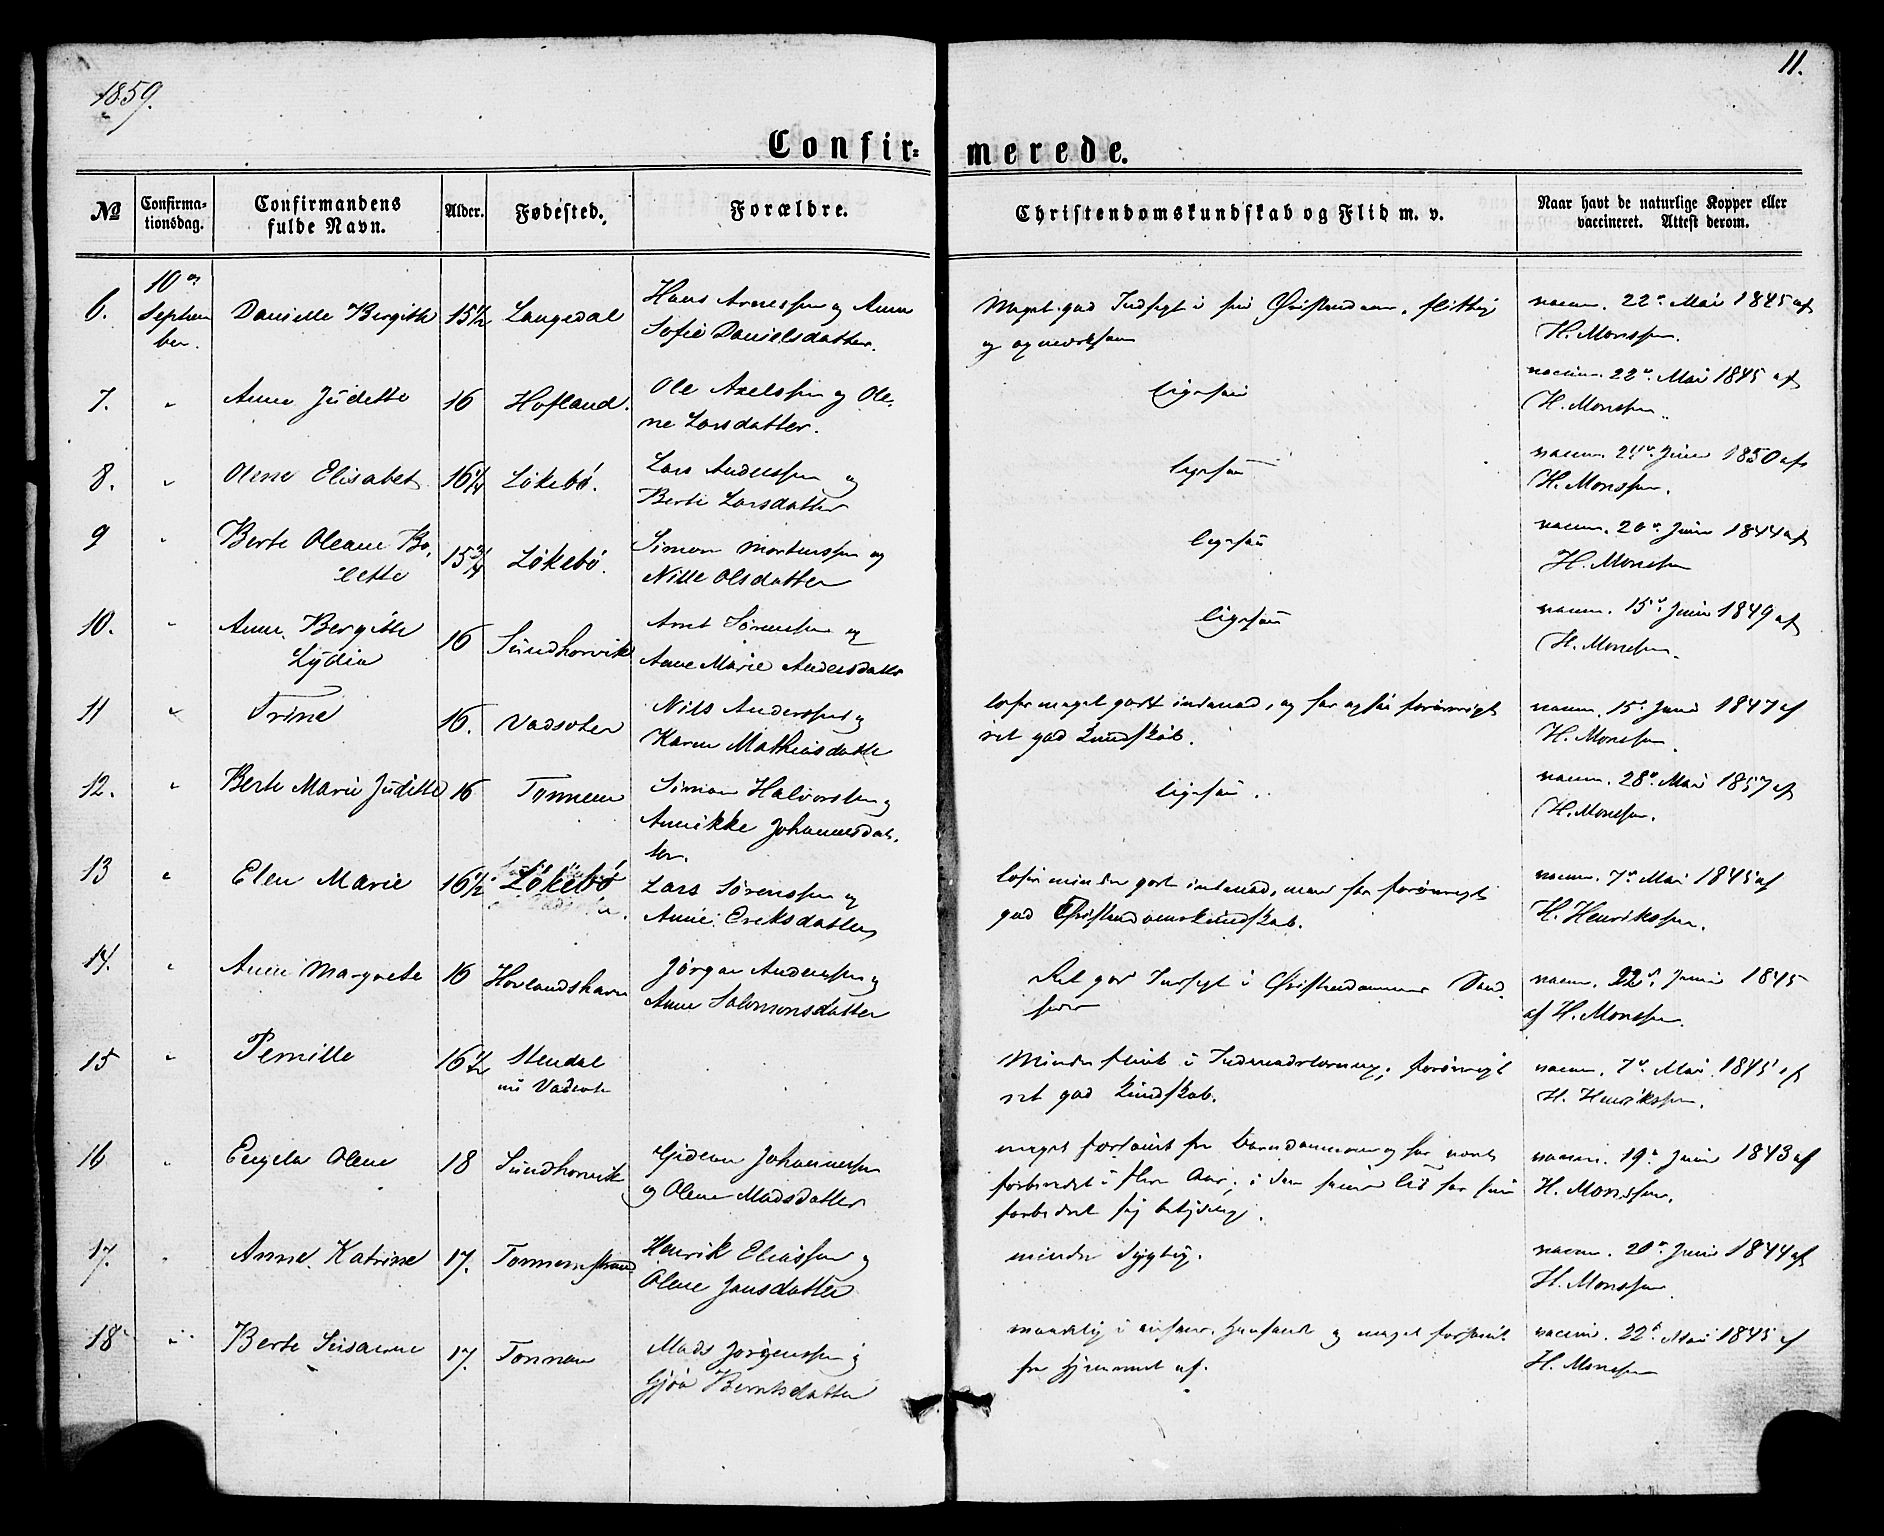 1859.
11.
Confir- merede.
No
Confirma-
tionsdag.
Confirmandens
fulde Navn.
Alder.
Fødested.
Forældre.
Christendomskundskab og Flid m. v.
Naar havt de naturlige Kopper eller
vaccineret. Attest derom.
6.
10de
Septem
ber.
Danielle Bergitte
15 1/2
Langedal
Hans Arnessen og Anne
Sofie Danielsdatter.
Meget god Indsigt i sin Christendom, flittig
og opmærksom
vaccin. 22de Mai 1845 af
H. Monssen.
7.
"
Anne Judette
16
Hofland.
Ole Axelssen og Ole-
ne Larsdatter.
ligesaa
vaccin. 22de Mai 1845 af
H. Monssen.
8.
"
Oline Elisabet
16 1/4
Løkebø.
Lars Anderssen og
Berte Larsdatter
ligesaa
vaccin. Juni 1850 af
H. Monssen.
9
"
Berte Oleane Bo-
lette
15 3/4
Løkebø.
Simon Mortenssen og
Nille Olsdatter
ligesaa
vaccin. 20de Juni 1844 af
H. Monssen
10.
"
Anne Bergitte
Lydia
16
Sundhorvik
Sørenssen og
Anne Marie Andersdatter
ligesaa
vaccin. 15de Juni 1849 af
H. Monssen.
11
"
Trine
16.
Vadsoter
Nils Anderssen og
Karen Mathiasdatter
meget godt indenad, og har forøvrigt
ret god Kundskab.
vaccin. 15de Juni 1847 af
H. Monssen.
12.
"
Berte Marie Juditte
16
Tonnem
Simon Halvorssen og
Annikke Johannesdat-
ter.
ligesaa.
vaccin. 28de Mai 1857 af
H. Monssen.
13
"
Elen Marie
16 1/2
Løkebø
Lars Sørenssen og
Anne Eriksdatter
mindre godt indenad, men har forøvrigt
god Christendomskundskab.
vaccin. 7de Mai 1845 af
H. Henrikssen.
14.
"
Anne Margrete
16
Hovlandshavn
Jørgen Anderssen og
Anne Salomonsdatter
Ret god Indsigt i Christendommens Sand-
heder
vaccin. 22de Juni 1845
af H. Monssen.
15
"
Pernille
16 1/2
Stendal
nu Vadsoter
Mindre flink i Indenadslæsning; forøvrigt
ret god Kundskab.
vaccin. 7de Mai 1845 af
H. Henrikssen.
16
"
Engela Olene
18
Sundhorvik
Gideon Johannessen
og Olene Madsdatter
meget forsømt fra Barndommen og har været
forberedet i flere Aar; i den senere Tid har hun
forbedret sig betydelig.
vaccin. 19de Juni 1843 af
H. Monssen.
17.
"
Anne Katrine
17.
Tonnemstrand
Henrik Eliassen og
Olene Jansdatter
mindre dygtig.
vaccin. 20de Juni 1844 af
H. Monssen
18
"
Berte Susanne
17.
Tonnem
Mads Jørgenssen og
Gjøa Berntsdatter
maadelig i Henseende og meget forsømt
fra Hjemmet af.
vaccin. 22de Mai 1845 af
H. Monssen